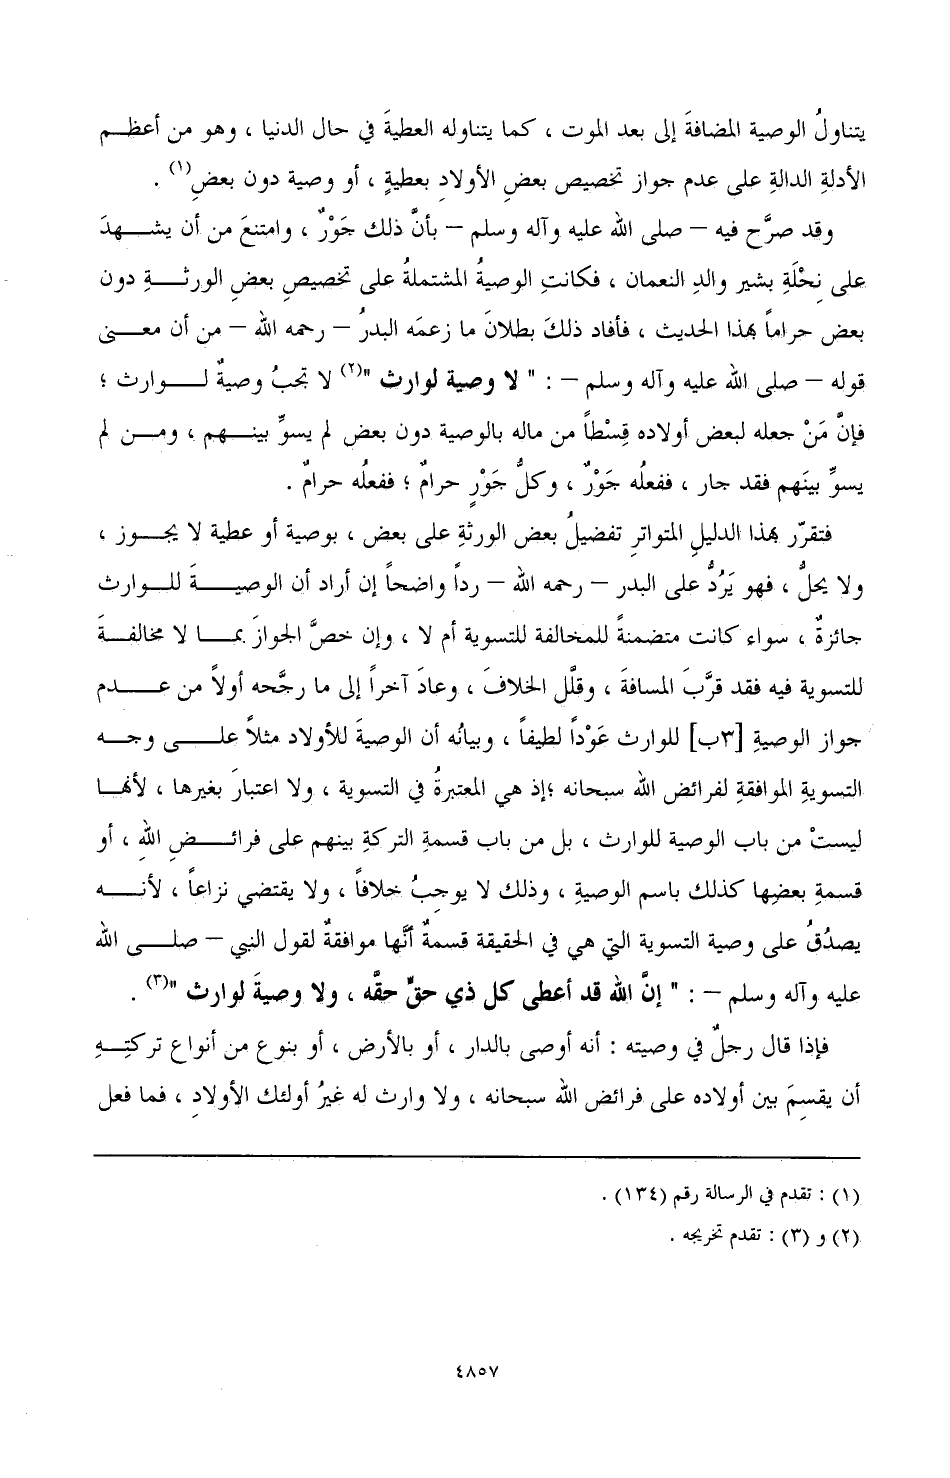 يتناولُ الوصية المضافةَ إلى بعد الموت ، كما يتناوله العطيةَ في حال الدنيا ، وهو من أعظم
الأدلةِ الدالةِ على عدم جواز تخصيص بعضِ الأولادِ بعطيةٍ ، أو وصية دون بعضٍ(١) .
وقد صرَّح فيه – صلى الله عليه وآله وسلم – بأنَّ ذلك جَوْرٌ ، وامتنعَ من أن يشهدَ
على نحْلَةِ بشير والدِ النعمان ، فكانتِ الوصيةُ المشتملةُ على تخصيصِ بعضِ الورثةِ دون
بعض حراماً بهذا الحديث ، فأفاد ذلكَ بطلانَ ما زعمَه البدرُ – رحمه الله – من أن معنى
قوله – صلى الله عليه وآله وسلم – : " لا وصية لوارث "(٢) لا تجبُ وصيةٌ لوارث ؛
فإنَّ مَنْ جعله لبعض أولاده قِسْطاً من ماله بالوصية دون بعض لم يسوِّ بينهم ، ومن لم
يسوِّ بينَهم فقد جار ، ففعلُه جَوْرٌ ، وكلُّ جَوْرٍ حرامٌ ؛ ففعلُه حرامٌ .
فتقرّر بهذا الدليلِ المتواترِ تفضيلُ بعض الورثةِ على بعض ، بوصية أو عطية لا يجوز ،
ولا يحلُّ ، فهو يَرُدُّ على البدر – رحمه الله – رداً واضحاً إن أراد أن الوصيةَ للوارث
جائزةٌ ، سواء كانت متضمنةً للمخالفة للتسوية أم لا ، وإن خصَّ الجوازَ بما لا مخالفةَ
للتسوية فيه فقد قرَّبَ المسافةَ ، وقلَّل الخلافَ ، وعادَ آخراً إلى ما رجَّحه أولاً من عدم
جواز الوصيةِ [٣ب] للوارث عَوْداً لطيفاً ، وبيانُه أن الوصيةَ للأولاد مثلاً على وجه
التسويةِ الموافقةِ لفرائض الله سبحانه ؛إذ هي المعتبرةُ في التسوية ، ولا اعتبارَ بغيرها ، لأنها
ليستْ من باب الوصية للوارث ، بل من باب قسمةِ التركةِ بينهم على فرائضِ اللهِ ، أو
قسمةِ بعضِها كذلك باسم الوصيةِ ، وذلك لا يوجبُ خلافاً ، ولا يقتضي نزاعاً ، لأنه
يصدُقُ على وصية التسوية التي هي في الحقيقة قسمةٌ أنَّها موافقةٌ لقول النبي – صلى الله
عليه وآله وسلم – : " إنَّ الله قد أعطى كل ذي حقٍّ حقَّه ، ولا وصيةَ لوارث "(٣) .
فإذا قال رجلٌ في وصيته : أنه أوصى بالدار ، أو بالأرض ، أو بنوع من أنواع تركتِهِ
أن يقسمَ بين أولاده على فرائض الله سبحانه ، ولا وارث له غيرُ أولئك الأولادِ ، فما فعل
(١) : تقدم في الرسالة رقم (١٣٤) .
(٢) و (٣) : تقدم تخريجه .
٤٨٥٧